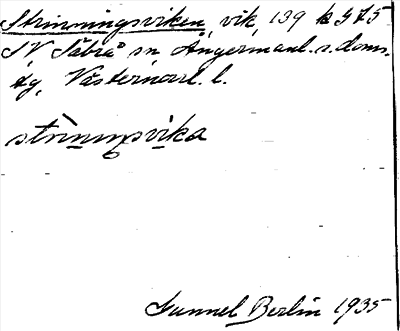 Strinningsviken, vik, 139 k G 75
SV Säbrå sn Ångermanl. s. doms.
tg, Västernorrl. l.
strìnıŋsvika
Gunnel Berlin 1935